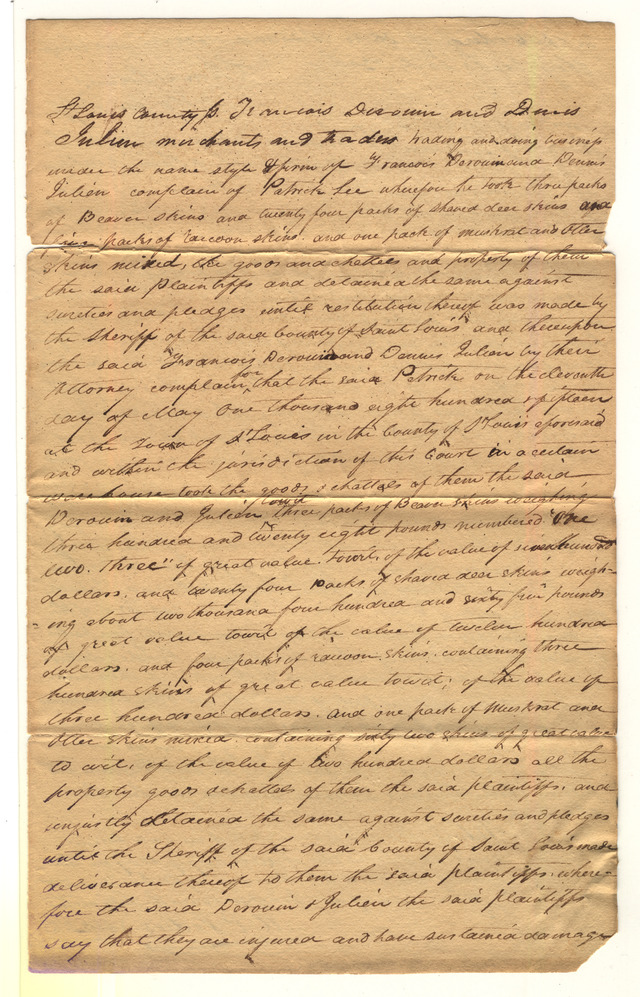 St Louis County Ss. Francois Derouin and Denis
Julien merchants and traders trading and doing business
under the name style & firm of Francois Derouin and Dennis
Julien complain of Patrick Lee wherefore he took three packs
of Beaver skins and twenty four packs of shaved deer skins and
four packs of raccoon skins. and one pack of muskrat and Otter
skins mixed, the goods and chattles and property of them
the said plaintiffs and detained the same against
sureties and pledges until restitution thereof was made by
the Sheriff of the said County of Saint Louis and thereupon
the said Francois Derouin and Dennis Julien by their
Attorney complain for that the said Patrick on the eleventh
day of May One thousand eight hundred & fifteen
at the Town of St Louis in the County of St Louis aforesaid
and within the jurisdiction of this Court in a certain
ware house took the goods & chattles of them the said
Derouin and Julien towit three packs of Beaver skins weighing
three hundred and twenty eight pounds numbered "One
two. three" of great value. towit, of the value of seven hundred
dollars. and twenty four packs of shaved deer skins weigh-
=ing about two thousand four hundred and sixty five pounds
of great value towit of the value of twelve hundred
dollars. and four packs of raccoon skins. containing three
hundred skins of great value towit; of the value of
three hundred dollars. and one pack of muskrat and
Otter skins mixed. containing sixty two skins of great value
to wit, of the value of two hundred dollars all the
property goods & chattles of them the said plaintiffs. and
unjustly detained the same against sureties and pledges
until the Sheriff of the said County of Saint Louis made
deliverance thereof to them the said plaintiffs. where-
fore the said Derouin & Julien the said plaintiffs
say that they are injured and have sustained damage